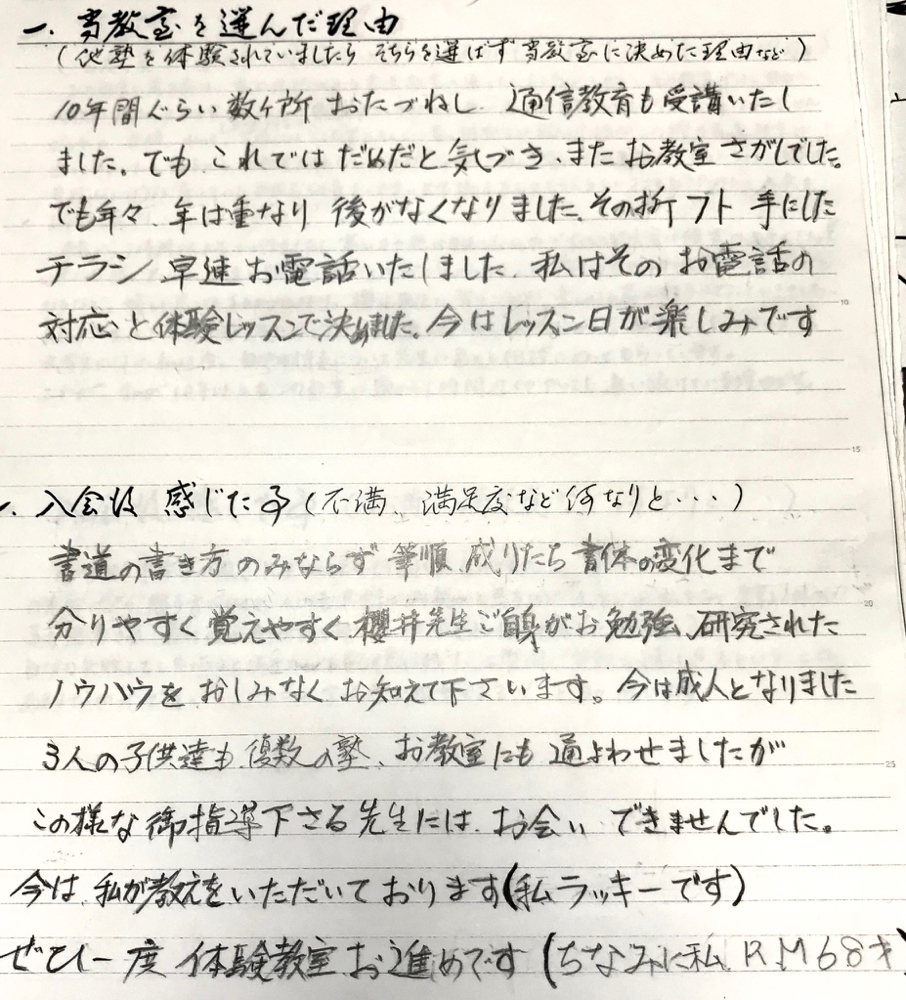 一. 当教室を選んだ理由
(他塾を体験されていましたら そちらを選ばず当教室に決めた理由など)
10年間ぐらい数ヶ所 おたづねし、通信教育も受講いたし
ました。でも これでは だめだと気づき、また お教室さがしでした。
でも年々、年は重なり 後がなくなりました、その折 フト 手にした
チラシ 早速 お電話いたしました、私はその お電話の
対応と体験レッスンで決めました。今はレッスン日が楽しみです
10
15
一. 入会後 感じた事(不満、満足度など何なりと・・・)
書道の書き方のみならず 筆順、成りたち 書体の変化まで
20
分りやすく 覚えやすく、櫻井先生ご自身がお勉強、研究された
ノウハウを おしみなく お知えて下さいます。今は成人となりました
3人の子供達も 復数の塾、お教室にも 通よわせましたが
25
この様な御指導下さる先生には、お会い できませんでした。
今は、私が教えをいただいております(私ラッキーです)
ぜひ一度 体験教室お進めです (ちなみに私 R M 68才)